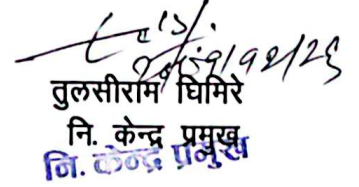 तुलसीराम घिमिरे
नि. केन्द्र प्रमुख
नि. केन्द्र प्रमुख